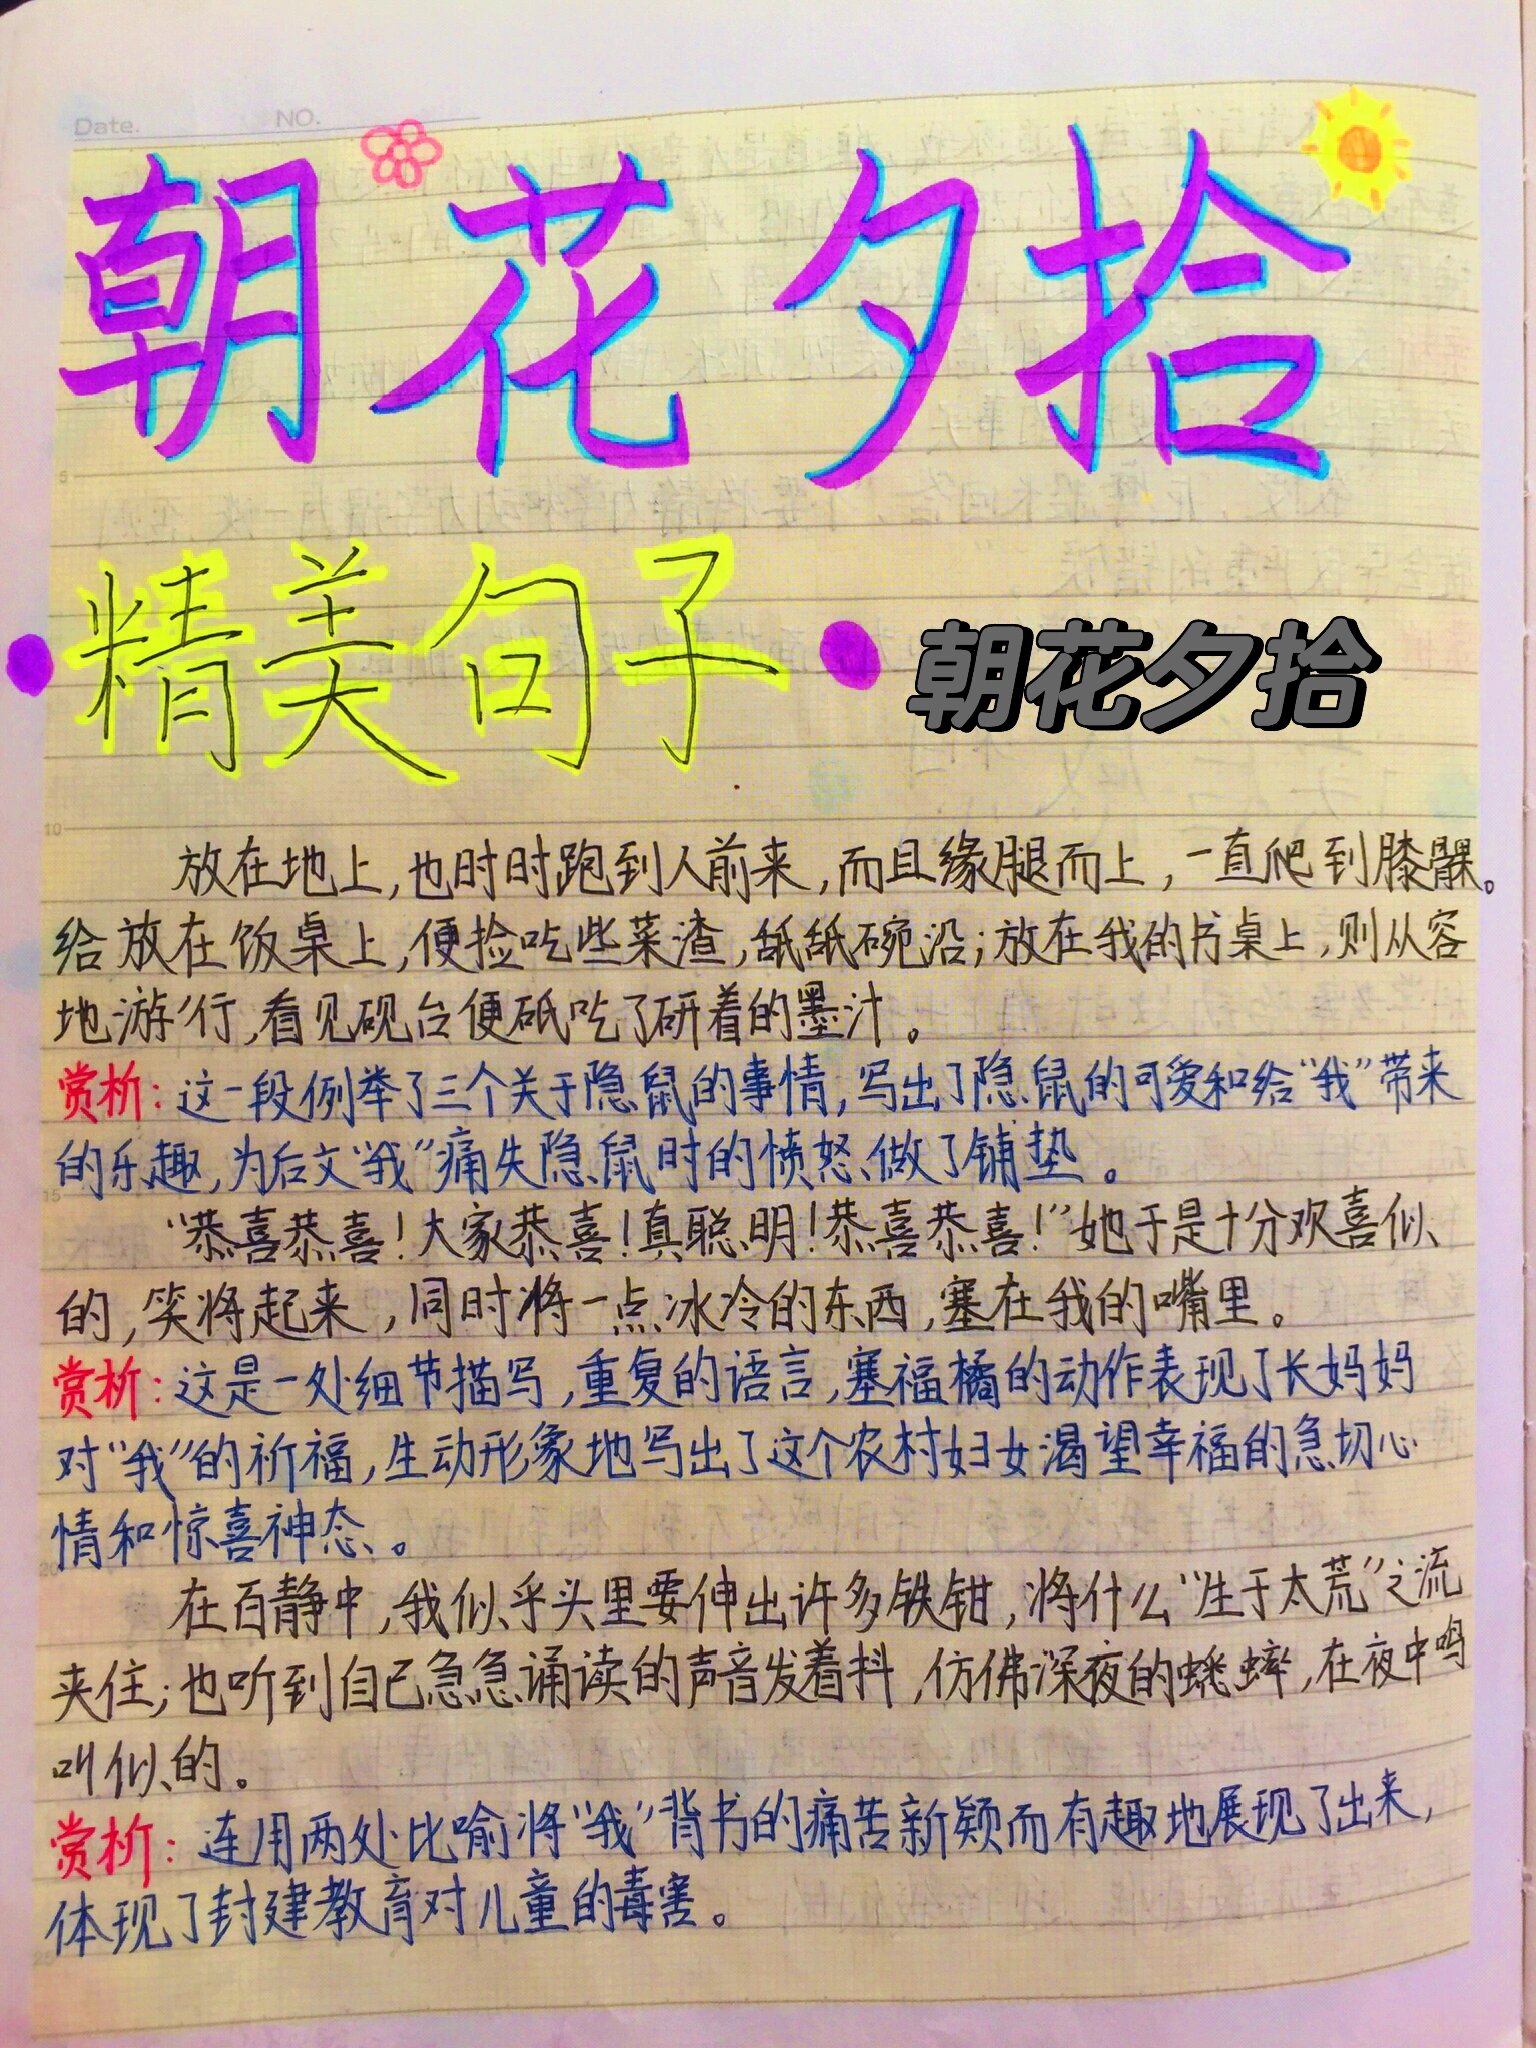 Date.
NO.
朝花夕拾
精美句子
朝花夕拾
5
10
放在地上,也时时跑到人前来,而且缘腿而上,一直爬到膝髁。
给放在饭桌上,便捡吃些菜渣,舐舐碗沿;放在我的书桌上,则从容
地游行,看见砚台便砥吃了研着的墨汁。
赏析:这一段例举了三个关于隐鼠的事情,写出了隐鼠的可爱和给“我”带来
的乐趣,为后文“我”痛失隐鼠时的愤怒做了铺垫。
15
“恭喜恭喜!大家恭喜!真聪明!恭喜恭喜!”她于是十分欢喜似
的,笑将起来,同时将一点冰冷的东西,塞在我的嘴里。
赏析:这是一处细节描写,重复的语言,塞福橘的动作表现了长妈妈
对“我”的祈福,生动形象地写出了这个农村妇女渴望幸福的急切心
情和惊喜神态。
20
在百静中,我似乎头里要伸出许多铁钳,将什么“生于太荒”之流
夹住;也听到自己急急诵读的声音发着抖,仿佛深夜的蟋蟀,在夜中鸣
叫似的。
赏析:连用两处比喻将“我”背书的痛苦新颖而有趣地展现了出来,
体现了封建教育对儿童的毒害。